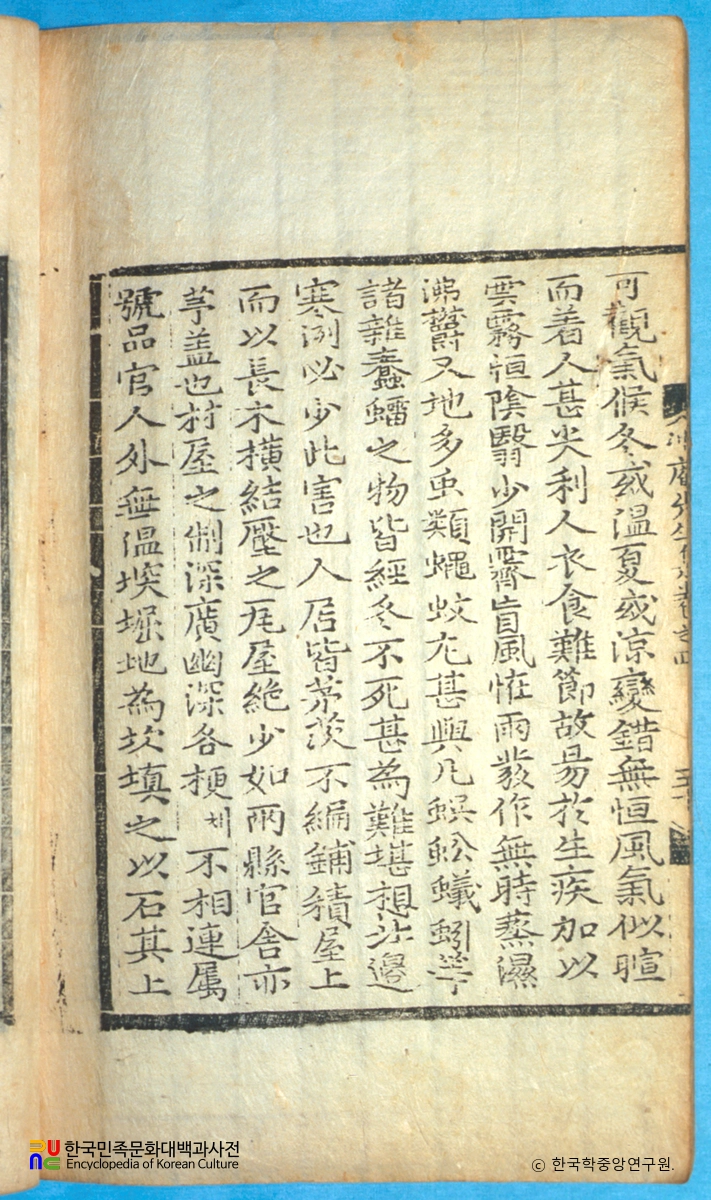 可觀氣候冬或温夏或凉變錯無恒風氣似暄
而着人甚尖利人衣食難節故易於生疾加以
雲霧恒陰翳少開霽盲風怪雨發作無時蒸濕
沸鬱又地多虫類蠅蚊尤甚與凡蜈蚣蟻蚓等
諸雜蠢蟠之物皆經冬不死甚為難堪想北邊
寒冽必少此害也人居皆茅茨不編鋪積屋上
而以長木橫結壓之瓦屋絶少如兩縣官舍亦
茅盖也村屋之制深廣幽深各梗不相連屬
號品官人外無温堗堀地為坎塡之以石其上
先生集卷之四
한국민족문화대백과사전
Encyclopedia of Korean Culture
© 한국학중앙연구원.